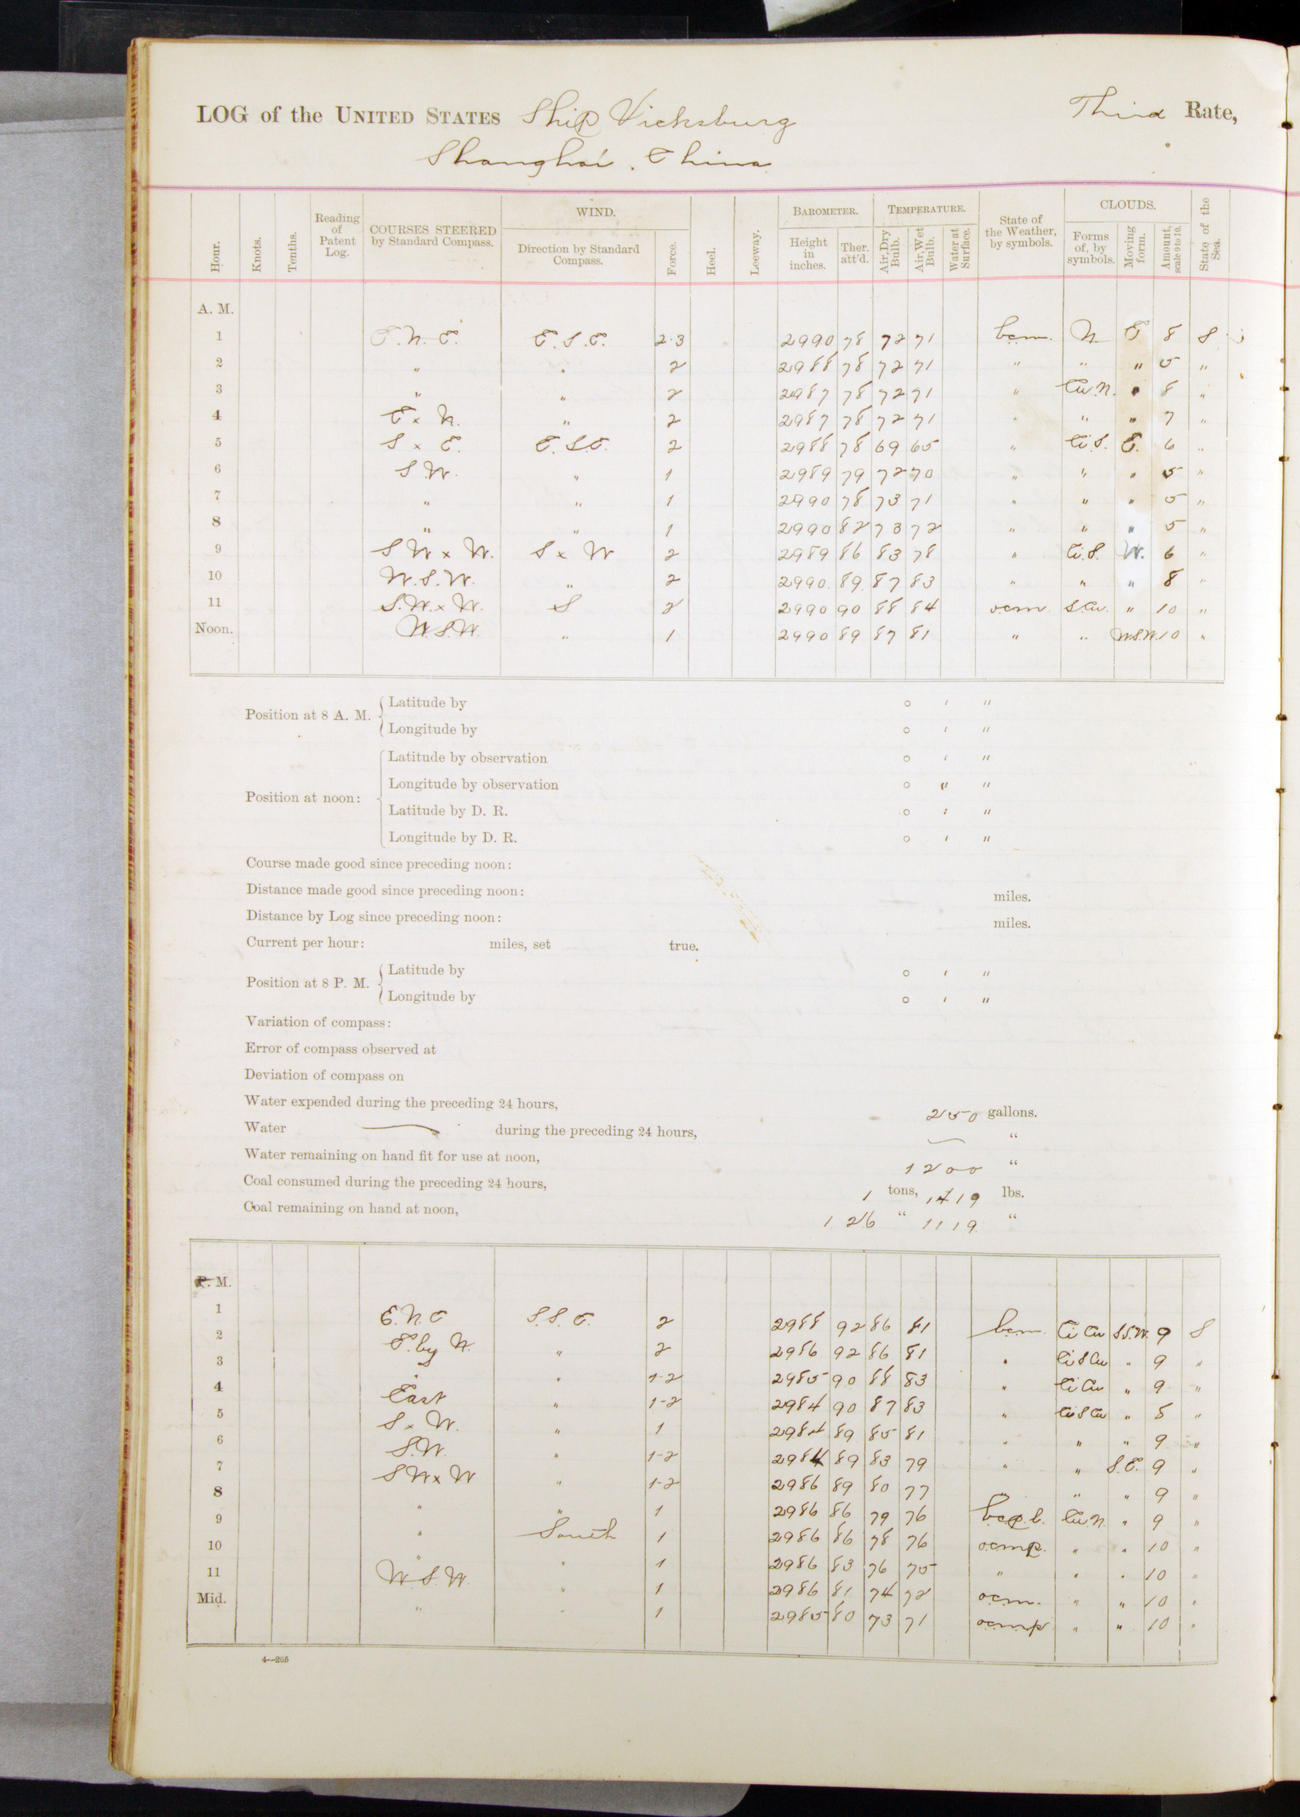 LOG of the UNITED STATES Ship Vicksburg Third Rate,
Shanghai, China
Hour. Knots. Tenths. Reading of Patent Log. COURSES STEERED by Standard Compass. WIND. Direction by Standard Compass. Force. Heel. Leeway. BAROMETER. Height in inches. Ther. att'd. TEMPERATURE. Air, Dry Bulb. Air, Wet Bulb. Water at Surface. State of the Weather, by symbols. CLOUDS. Forms of, by symbols. Moving form. Amount, scale 0 to 10. State of the Sea.
A. M.
1 E.N.E. E.S.E. 2-3 2990 78 72 71 bcm. N E 8 S
2 " " 2 2988 78 72 71 " " " 5 "
3 " " 2 2987 78 72 71 " Cu.N. " 8 "
4 E x N. " 2 2987 78 72 71 " " " 7 "
5 S x E. E.S.E. 2 2988 78 69 65 " Ci.S. E. 6 "
6 S.W. " 1 2989 79 72 70 " " " 5 "
7 " " 1 2990 78 73 71 " " " 5 "
8 " " 1 2990 82 73 72 " " " 5 "
9 S W x W. S x W 2 2989 86 83 78 " Ci.S. W. 6 "
10 W.S.W. " 2 2990. 89. 87 83 " " " 8 "
11 S.W. x W. S 2 2990 90 88 84 ocm S.Cu. " 10 "
Noon. W.S.W. " 1 2990 89 87 81 " " W.S.W. 10 "
Position at 8 A. M. Latitude by ° ' "
Longitude by ° ' "
Position at noon: Latitude by observation ° ' "
Longitude by observation ° ' "
Latitude by D. R. ° ' "
Longitude by D. R. ° ' "
Course made good since preceding noon:
Distance made good since preceding noon: miles.
Distance by Log since preceding noon: miles.
Current per hour: miles, set true.
Position at 8 P. M. Latitude by ° ' "
Longitude by ° ' "
Variation of compass:
Error of compass observed at
Deviation of compass on
Water expended during the preceding 24 hours, 250 gallons.
Water — during the preceding 24 hours, — "
Water remaining on hand fit for use at noon, 1200 "
Coal consumed during the preceding 24 hours, 1 tons, 1419 lbs.
Coal remaining on hand at noon, 126 " 1119 "
P. M.
1 E.N.E S.S.E. 2 2988 92 86 81 bcm. Ci Cu S.S.W. 9 S
2 E. by N. " 2 2986 92 86 81 " Ci S Cu " 9 "
3 " " 1-2 2985 90 88 83 " Ci Cu " 9 "
4 East " 1-2 2984 90 87 83 " Ci S Cu " 5 "
5 S x W. " 1 2984 89 85 81 " " " 9 "
6 S.W. " 1-2 2984 89 83 79 " " S.E. 9 "
7 S W x W " 1-2 2986 89 80 77 " " 9 "
8 " " 1 2986 86 79 76 Cu N. " 9 "
9 " South 1 2986 86 78 76 ocmp. " " 10 "
10 " " 1 2986 83 76 75 " " " 10 "
11 W.S.W. " 1 2986 81 74 72 ocm. " " 10 "
Mid. " " 1 2985 80 73 71 ocmp " " 10 "
4—265